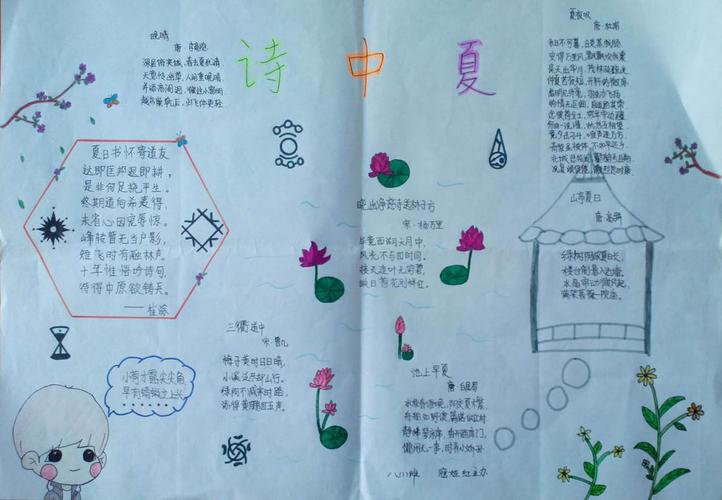 诗中夏
晚晴
唐·李商隐
深居俯夹城,春去夏犹清。
天意怜幽草,人间重晚晴。
并添高阁迥,微注小窗明。
越鸟巢干后,归飞体更轻。
夏夜叹
唐·杜甫
永日不可暮,炎蒸毒我肠
安得万里风,飘飖吹我裳
昊天出华月,茂林延疏光
仲夏苦夜短,开轩纳微凉
虚明见纤毫,羽虫亦飞扬
物情无巨细,自适固其常
念彼荷戈士,穷年守边疆
何由一洗濯,执热互相望
竟夕击刁斗,喧声连万方
青紫虽被体,不如早还乡
北城悲笳发,鹳鹤号且翔
况复烦促倦,激烈思时康
夏日书怀寄道友
达即匡邦退即耕,
是非何足挠平生。
终期道向希夷得,
未省心因宠辱惊。
峰转暂无当户影,
雉飞时有隔林声。
十年惟悟吟诗句,
待得中原欲铸兵。
——崔涂
晓出净慈寺送林子方
宋·杨万里
毕竟西湖六月中,
风光不与四时同。
接天莲叶无穷碧,
映日荷花别样红。
山亭夏日
唐·高骈
绿树阴浓夏日长,
楼台倒影入池塘。
水晶帘动微风起,
满架蔷薇一院香。
三衢道中
宋·曾几
梅子黄时日日晴,
小溪泛尽却山行。
绿阴不减来时路,
添得黄鹂四五声。
小荷才露尖尖角
早有蜻蜓立上头
池上早夏
唐·白居易
水积春塘晚,阴交夏木繁。
舟船如野渡,篱落似江村。
静拂琴床席,香开酒库门。
慵闲无一事,时弄小娇孙。